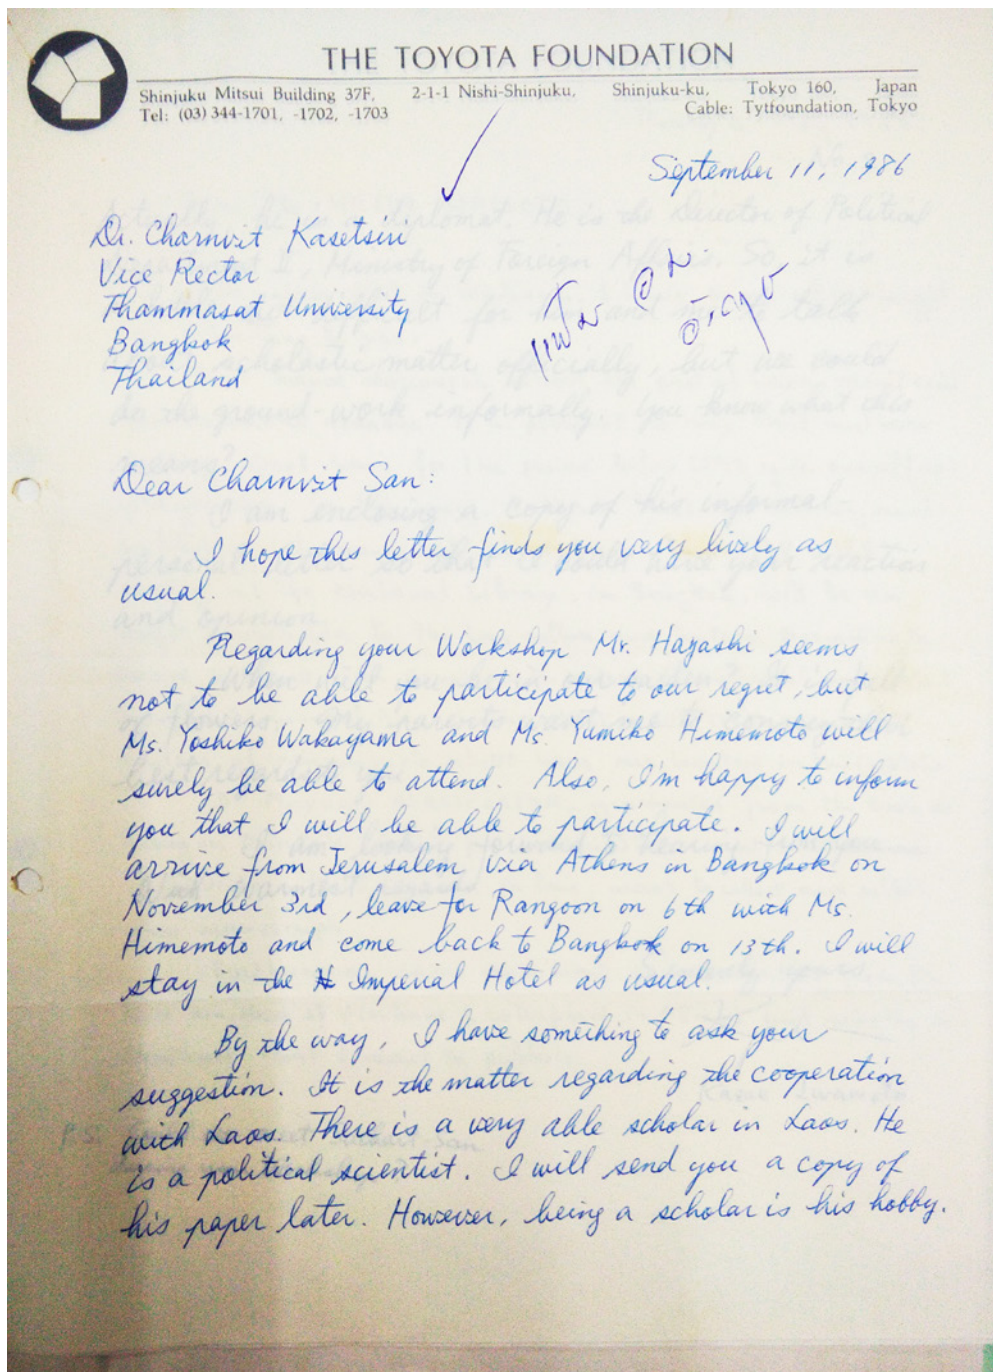 THE TOYOTA FOUNDATION
Shinjuku Mitsui Building 37F, 2-1-1 Nishi-Shinjuku, Shinjuku-ku, Tokyo 160, Japan
Tel: (03) 344-1701, -1702, -1703 Cable: Tytfoundation, Tokyo
September 11, 1986
Dr. Charnvit Kasetsiri
Vice Rector
Thammasat University
Bangkok
Thailand
Dear Charnvit San:
I hope this letter finds you very lively as
usual.
Regarding your Workshop Mr. Hayashi seems
not to be able to participate to our regret, but
Ms. Yoshiko Wakayama and Ms. Yumiko Himemoto will
surely be able to attend. Also, I'm happy to inform
you that I will be able to participate. I will
arrive from Jerusalem via Athens in Bangkok on
November 3rd, leave for Rangoon on 6th with Ms.
Himemoto and come back to Bangkok on 13th. I will
stay in the Imperial Hotel as usual.
By the way, I have something to ask your
suggestion. It is the matter regarding the cooperation
with Laos. There is a very able scholar in Laos. He
is a political scientist. I will send you a copy of
his paper later. However, being a scholar is his hobby.